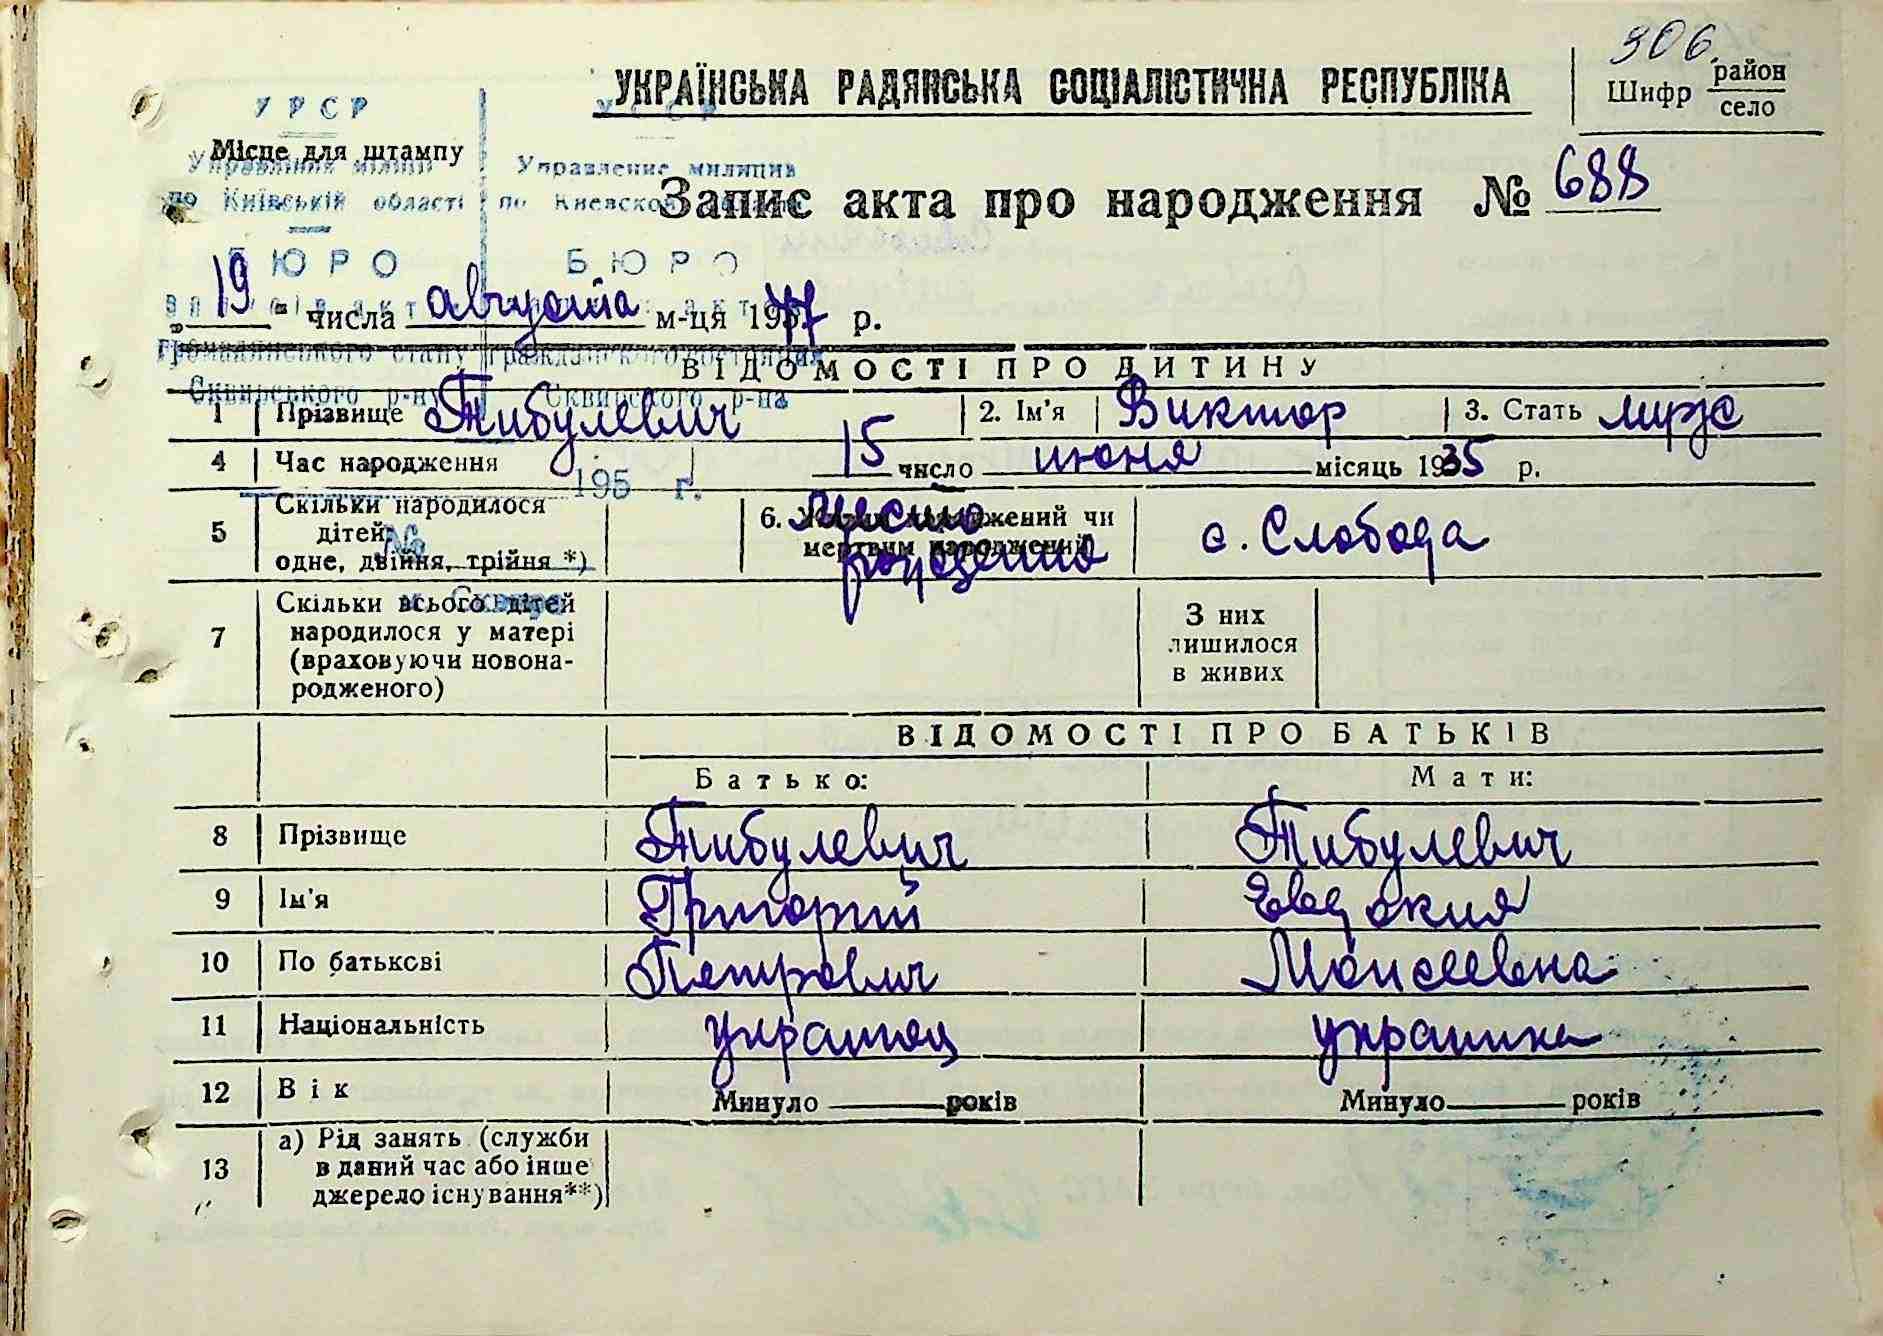 306.
Шифр район
село
УКРАЇНСЬКА РАДЯНСЬКА СОЦІАЛІСТИЧНА РЕСПУБЛІКА
УРСР
Місце для штампу
Управление милиции
по Київській області по Киевской
Запис акта про народження № 688
БЮРО БЮРО
„19“ числа августа м-ця 195 р.
громадянського стану гражданского состояния
Сквирського р-ну Сквирского р-на
ВІДОМОСТІ ПРО ДИТИНУ
1 Прізвище Тибулевич 2. Ім'я Виктор 3. Стать
4 Час народження 15 число июня місяць 1935 р.
195 г.
5 Скільки народилося
дітей:
одне, двійня, трійня *)
6. Живим народжений чи
мертвим народжений
место
рождения
с. Слобода
№
м. Сквира
7 Скільки всього дітей
народилося у матері
(враховуючи новона-
родженого)
З них
лишилося
в живих
ВІДОМОСТІ ПРО БАТЬКІВ
Батько: Мати:
8 Прізвище Тибулевич Тибулевич
9 Ім'я Григорий Евдокия
10 По батькові Петрович Моисеевна
11 Національність украинец украинка
12 Вік Минуло років Минуло років
13 а) Рід занять (служби
в даний час або інше
джерело існування**)